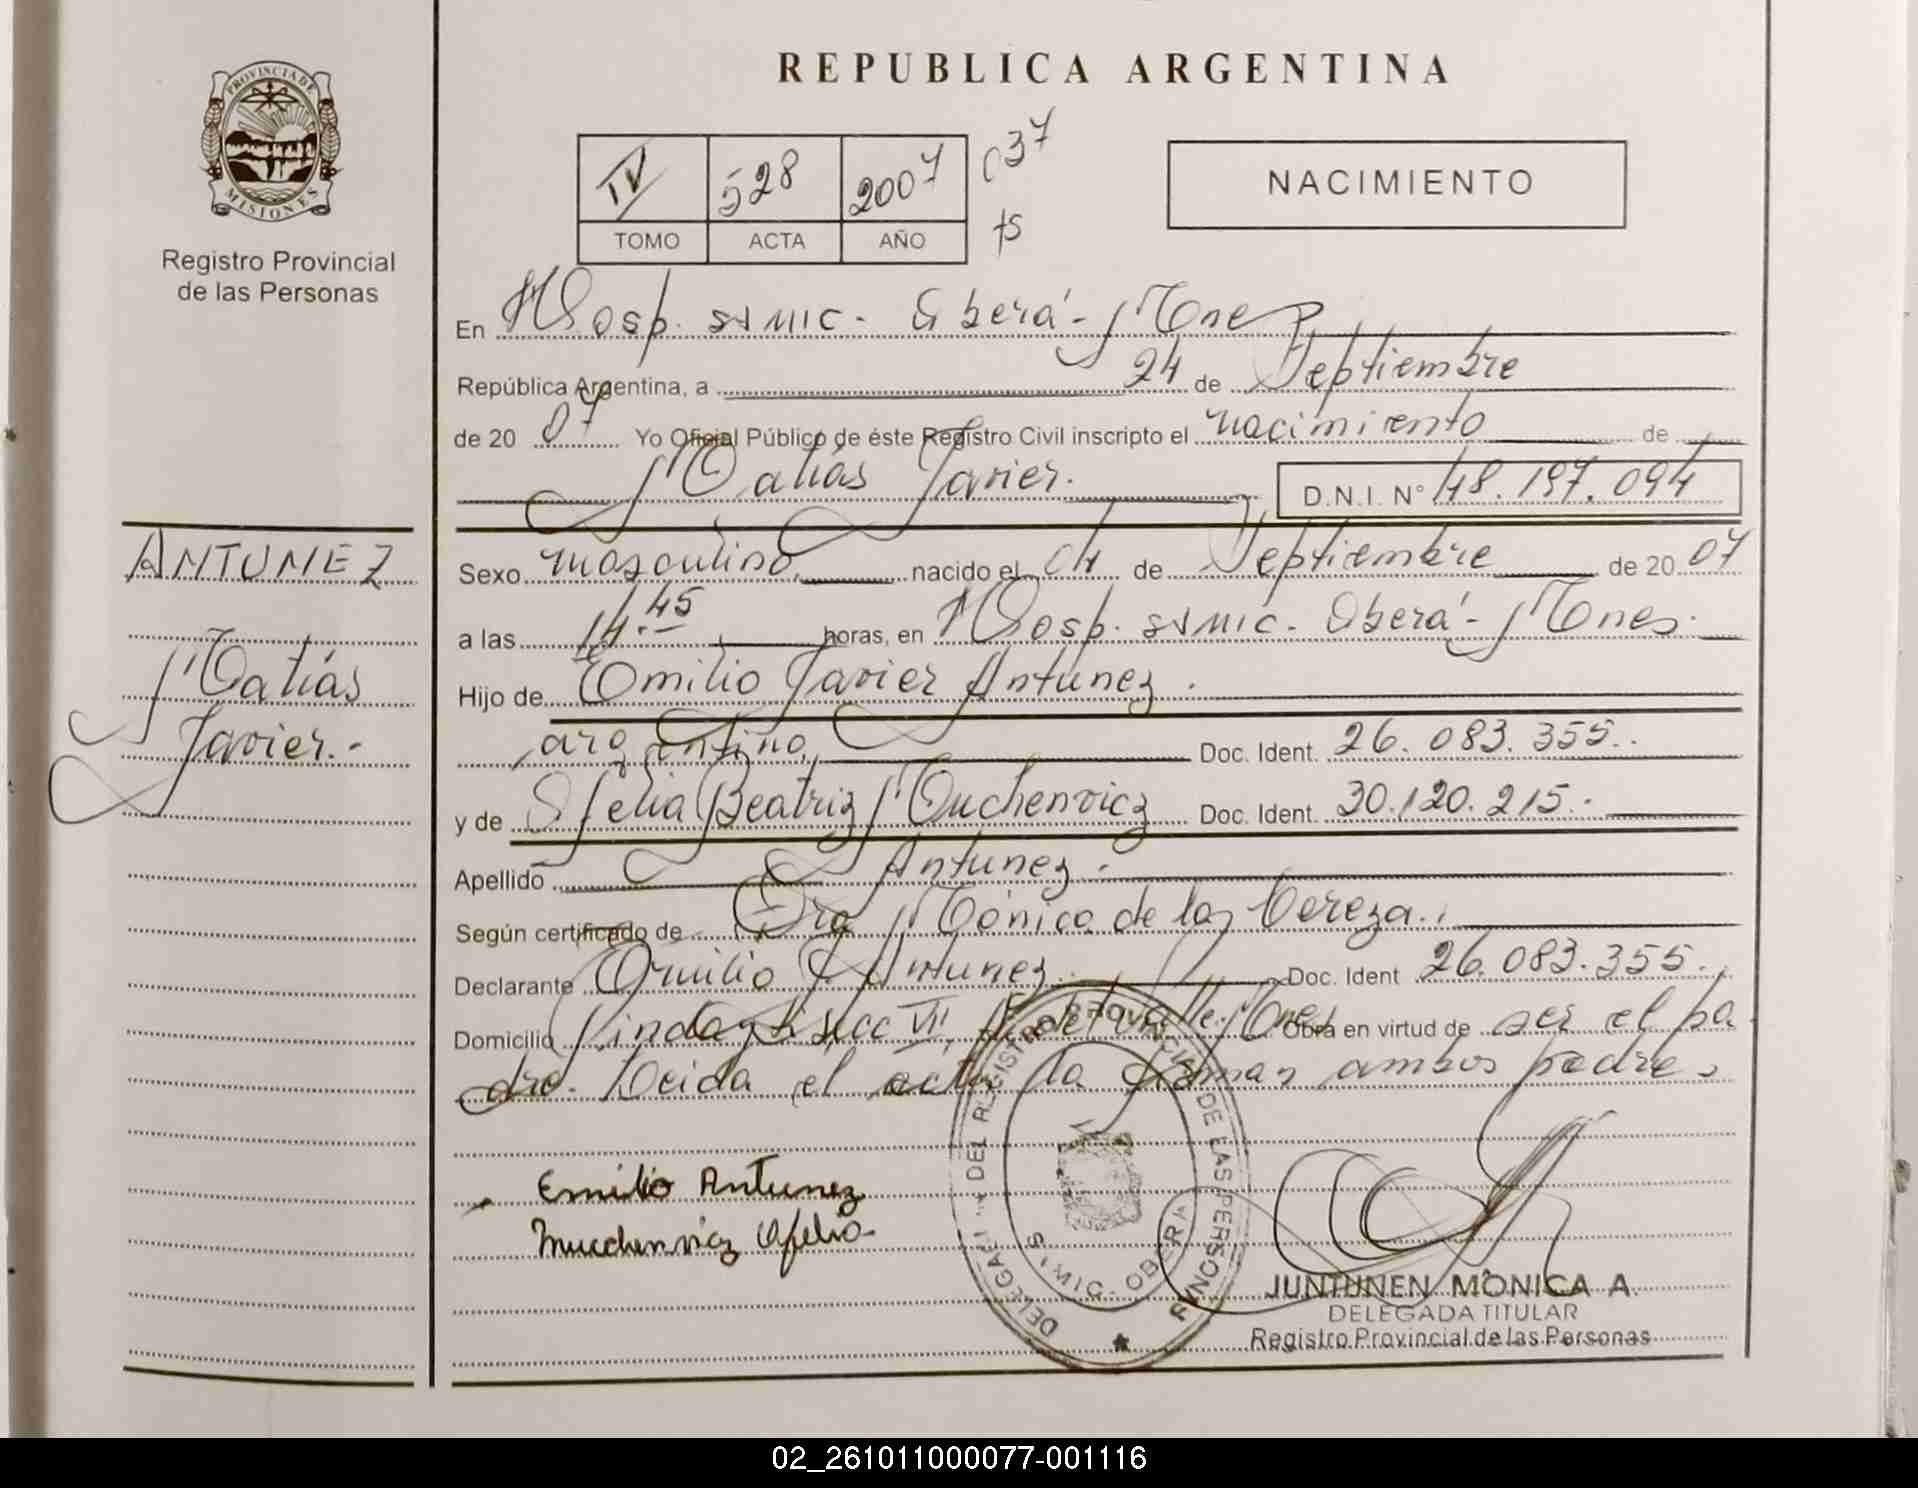 REPUBLICA ARGENTINA
PROVINCIA DE
MISIONES
Registro Provincial
de las Personas
IV 528 2007 037
TOMO ACTA AÑO ts
NACIMIENTO
En Hosp. SAMIC. Oberá - Mnes
República Argentina, a 24 de Septiembre
de 20 07 Yo Oficial Público de éste Registro Civil inscripto el nacimiento de
Matías Javier. D.N.I. Nº 48.197.094
ANTUNEZ
Matías
Javier.-
Sexo masculino, nacido el 04 de Septiembre de 20 07
a las 14.45 horas, en Hosp. SAMIC. Oberá - Mnes.
Hijo de Emilio Javier Antunez.
argentino, Doc. Ident. 26.083.355.
y de Ofelia Beatriz Muchenvicz Doc. Ident. 30.120.215.-
Apellido Antunez.
Según certificado de Dra Mónica de las
Declarante Emilio J. Antunez. Doc. Ident 26.083.355.
Domicilio Obra en virtud de ser el pa
dre. Leida el acta la firman ambos padres
Emilio Antunez
Mucchenvicz Ofelia
DELEGACI DEL REGISTRO PROVINCIAL DE LAS PERSONAS
OBERA
JUNTUNEN MONICA A
DELEGADA TITULAR
Registro Provincial de las Personas
02_261011000077-001116